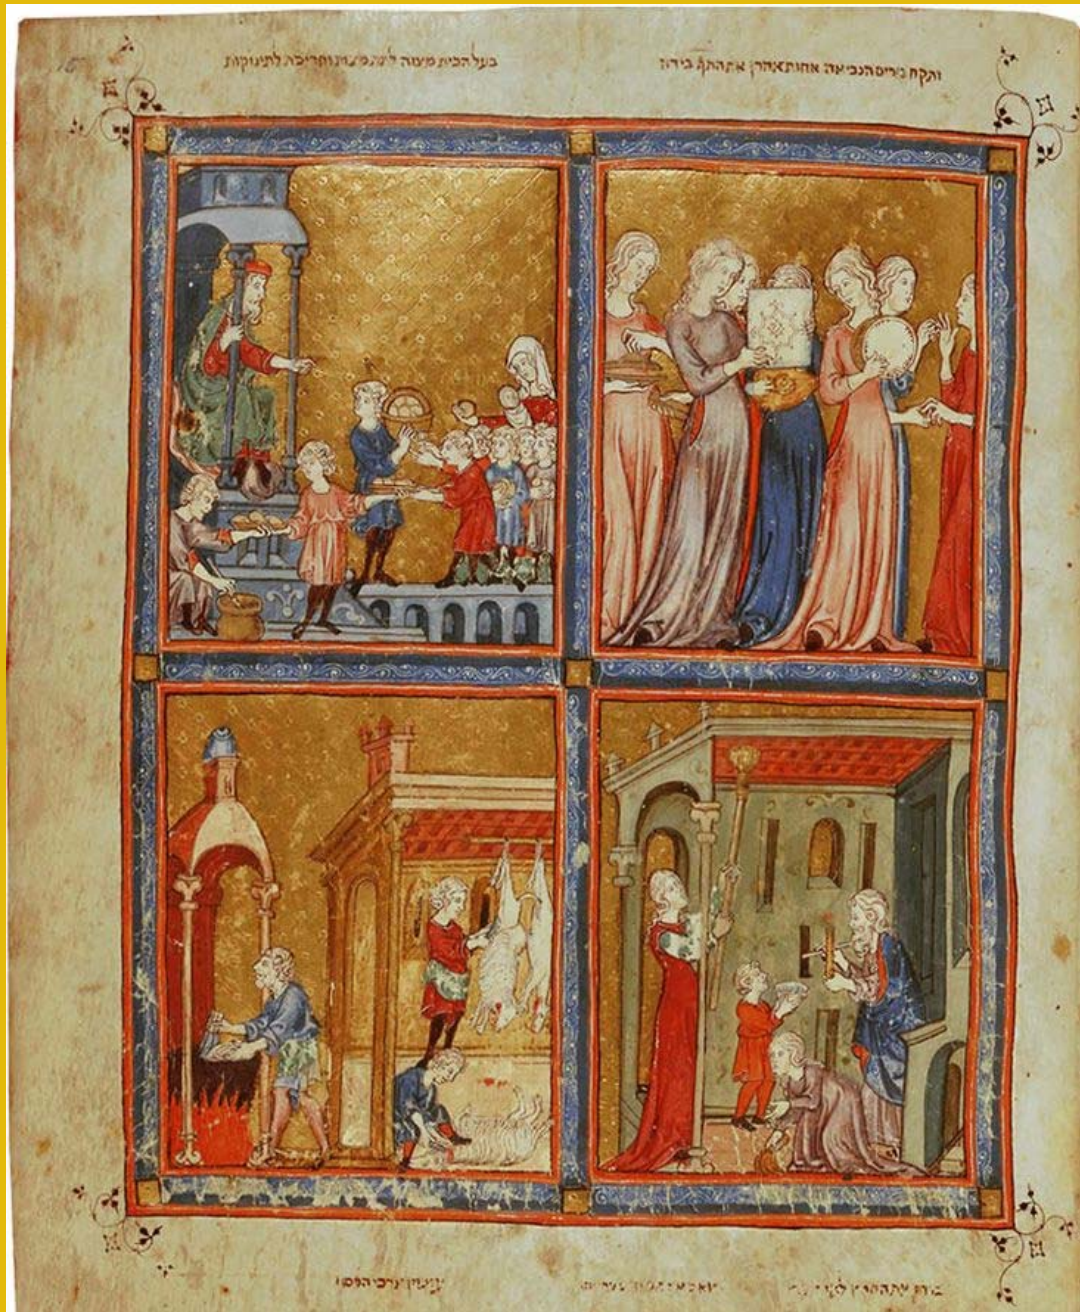 ותקח מרים הנביאה אחות אהרן את התף בידה
בעל הבית מצוה לתת מצות וחריסת לתינוקות
את החמץ
ערבי הפסח
15